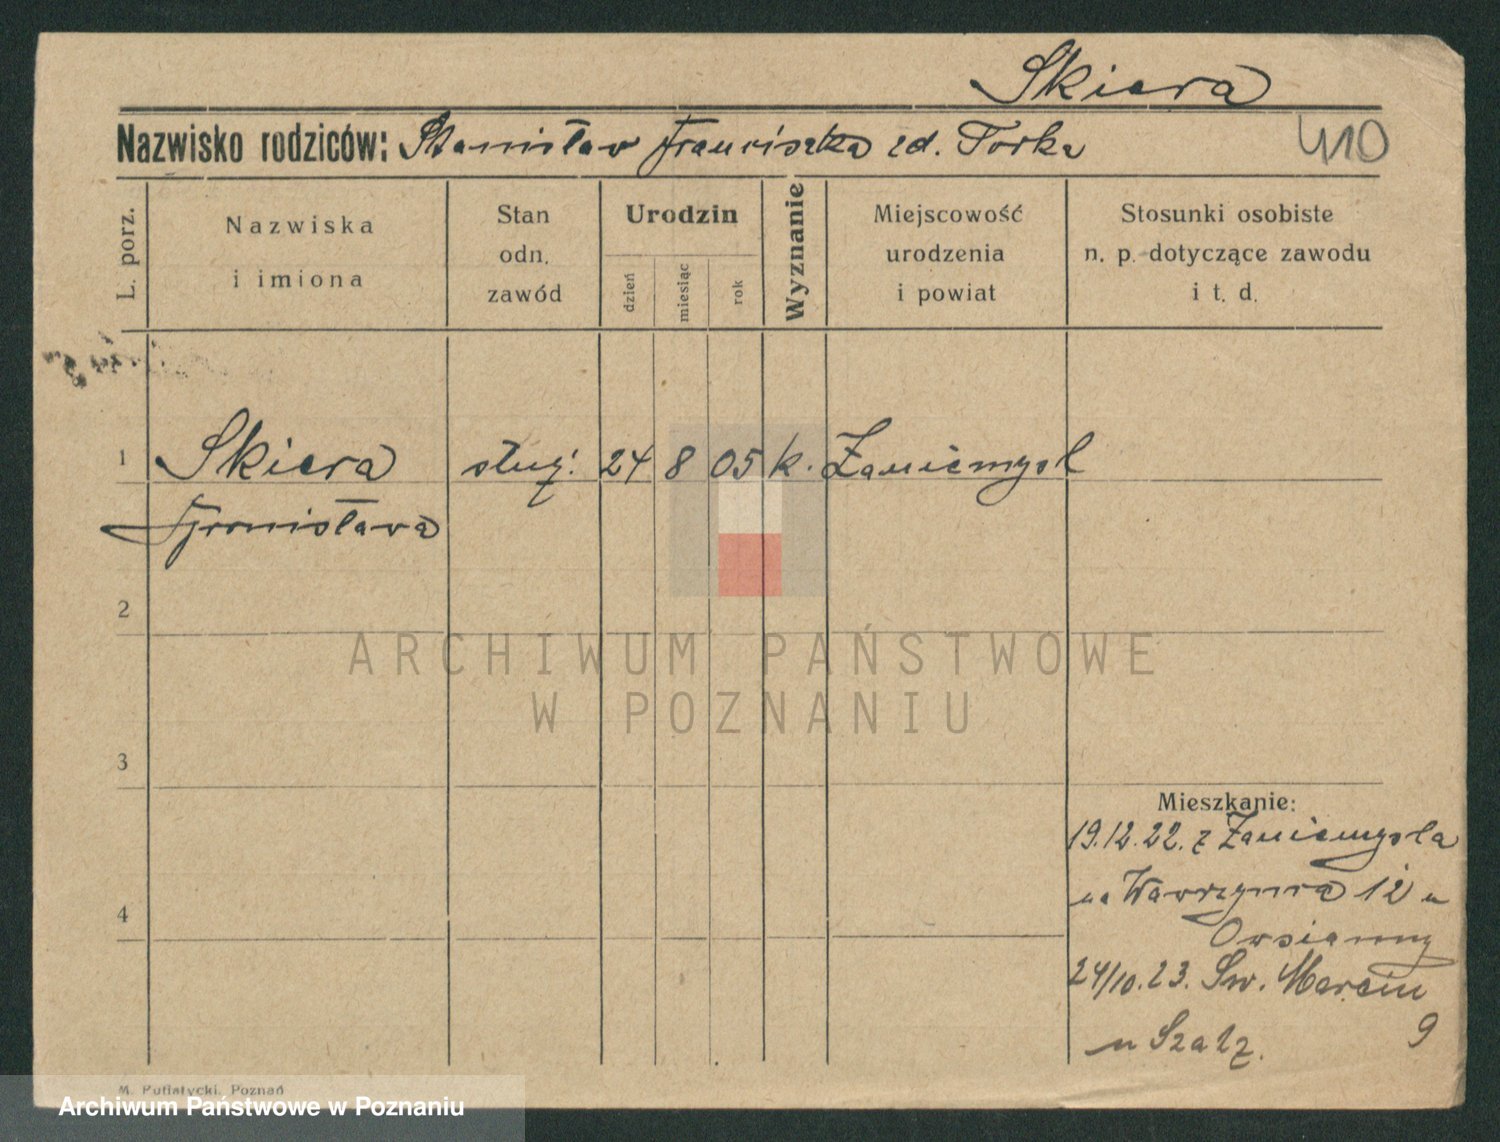 Skiera
Nazwisko rodziców: Stanisław Franciszka zd. Torka
410
L. porz.
Nazwiska
i imiona
Stan
odn.
zawód
Urodzin
dzień
miesiąc
rok
Wyznanie
Miejscowość
urodzenia
i powiat
Stosunki osobiste
n. p. dotyczące zawodu
i t. d.
1 Skiera służ. 24 8 05 k. Zaniemyśl
Bronisława
2
ARCHIWUM PAŃSTWOWE
W POZNANIU
3
Mieszkanie:
19.12.22. z Zaniemyśla
na Wawrzyńca 12 u
4
Owsianny
24/10.23. Św. Marcin
9
u
M. Putiatycki, Poznań
Archiwum Państwowe w Poznaniu